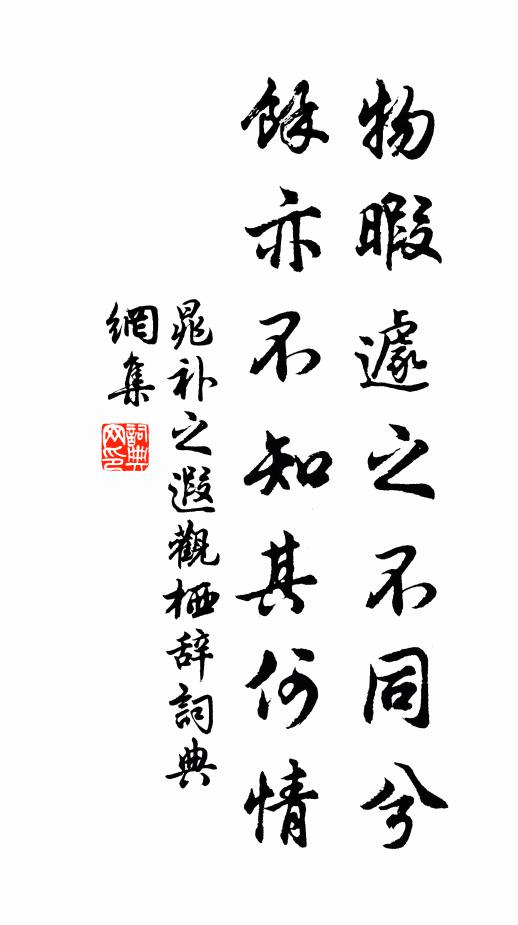 物暇遽之不同兮
餘亦不知其何情
晁补之遐觀栖辞詞典
網集
詞典
网印